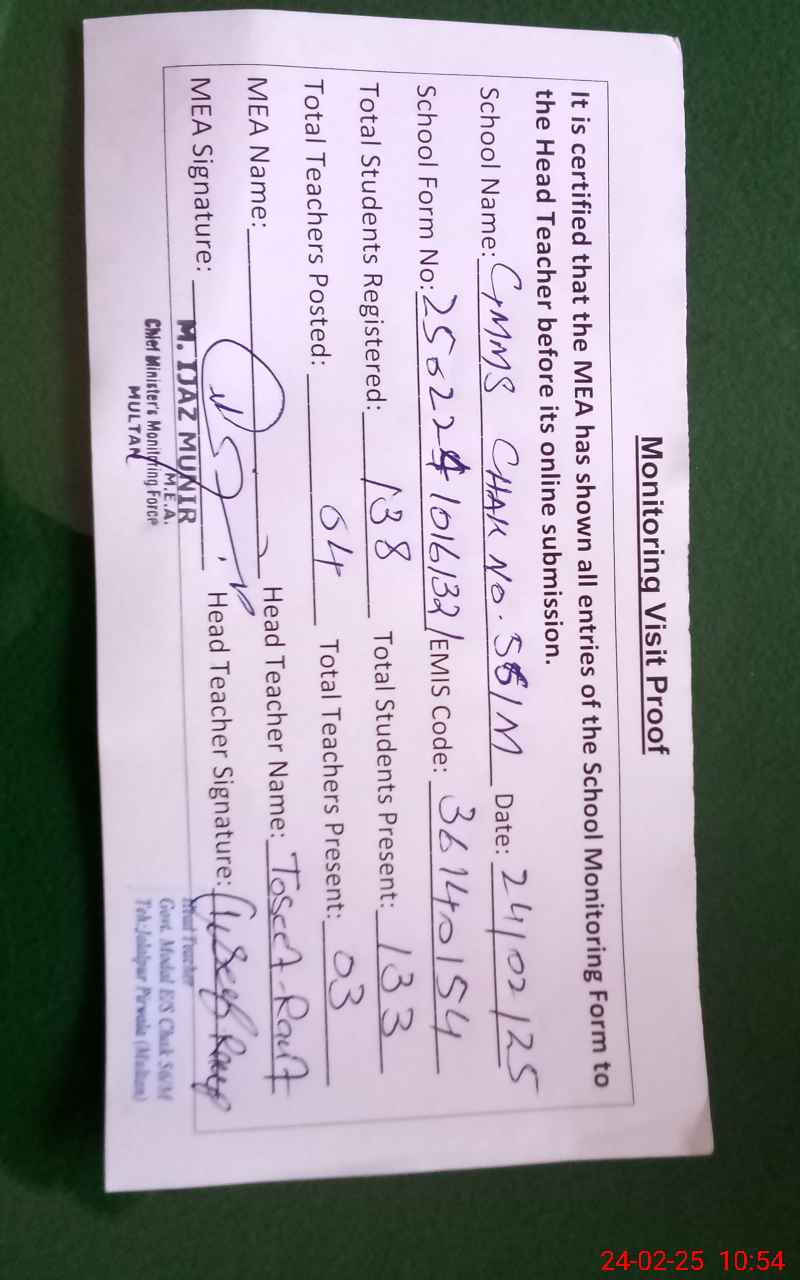 Monitoring Visit Proof
It is certified that the MEA has shown all entries of the School Monitoring Form to
the Head Teacher before its online submission.
School Name: GMMS CHAK NO. 56/M Date: 24/02/25
School Form No: 2502241016132/EMIS Code: 36140154
Total Students Registered: 138 Total Students Present: 133
Total Teachers Posted: 04 Total Teachers Present: 03
MEA Name: Head Teacher Name:
MEA Signature: Head Teacher Signature:
M. IJAZ MUNIR
M.E.A.
Chief Minister's Monitoring Force
MULTAN
Head Teacher
Govt. Modal E/S Chak 56/M
Teh: Jalalpur Pirwala (Multan)
24-02-25 10:54